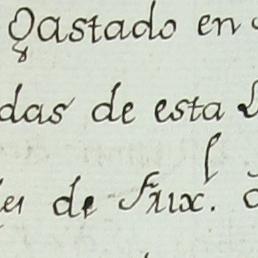 Gastado en
das de esta
de Frix.